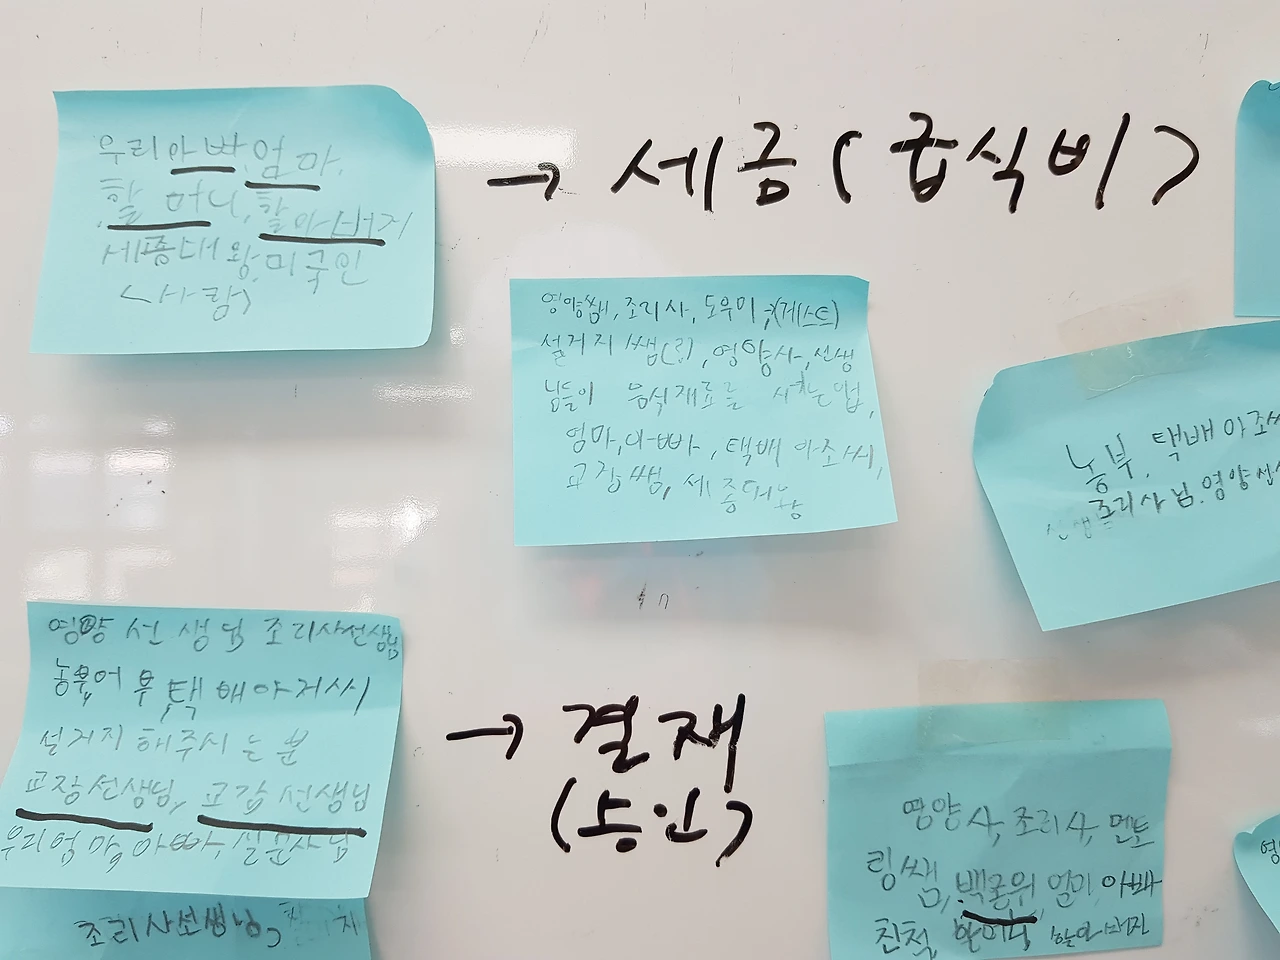 우리아빠,엄마,
할머니,할아버지
세종대왕,미국인
<사랑>
→ 세금(급식비)
영양쌤, 조리사, 도우미,(게스트)
설거지 쌤(님), 영양사, 선생
님들이 음식재료를
엄마,아빠, 택배 아조씨,
교장쌤, 세종대왕
농부, 택배 아조씨
조리사님, 영양선
선생
영양 선생님 조리사선생님
농부어부 택배아저씨
설거지 해주시는 분
교장선생님, 교감 선생님
우리엄마, 아빠,
→ 결재
(승인)
조리사선생님
영양사, 조리사, 멘토
링쌤, 아빠
친척, 할아버지
영